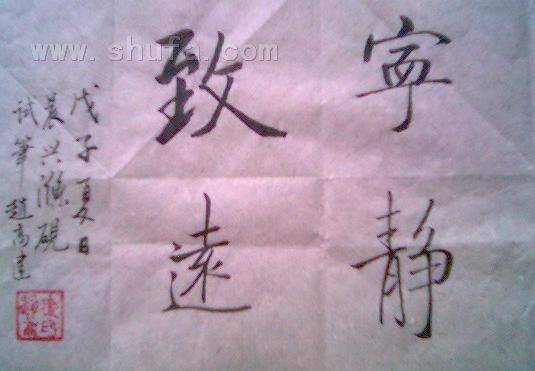 www.shufa.com
寧靜
致遠
戊子夏日
晨興滌硯
試筆趙高達